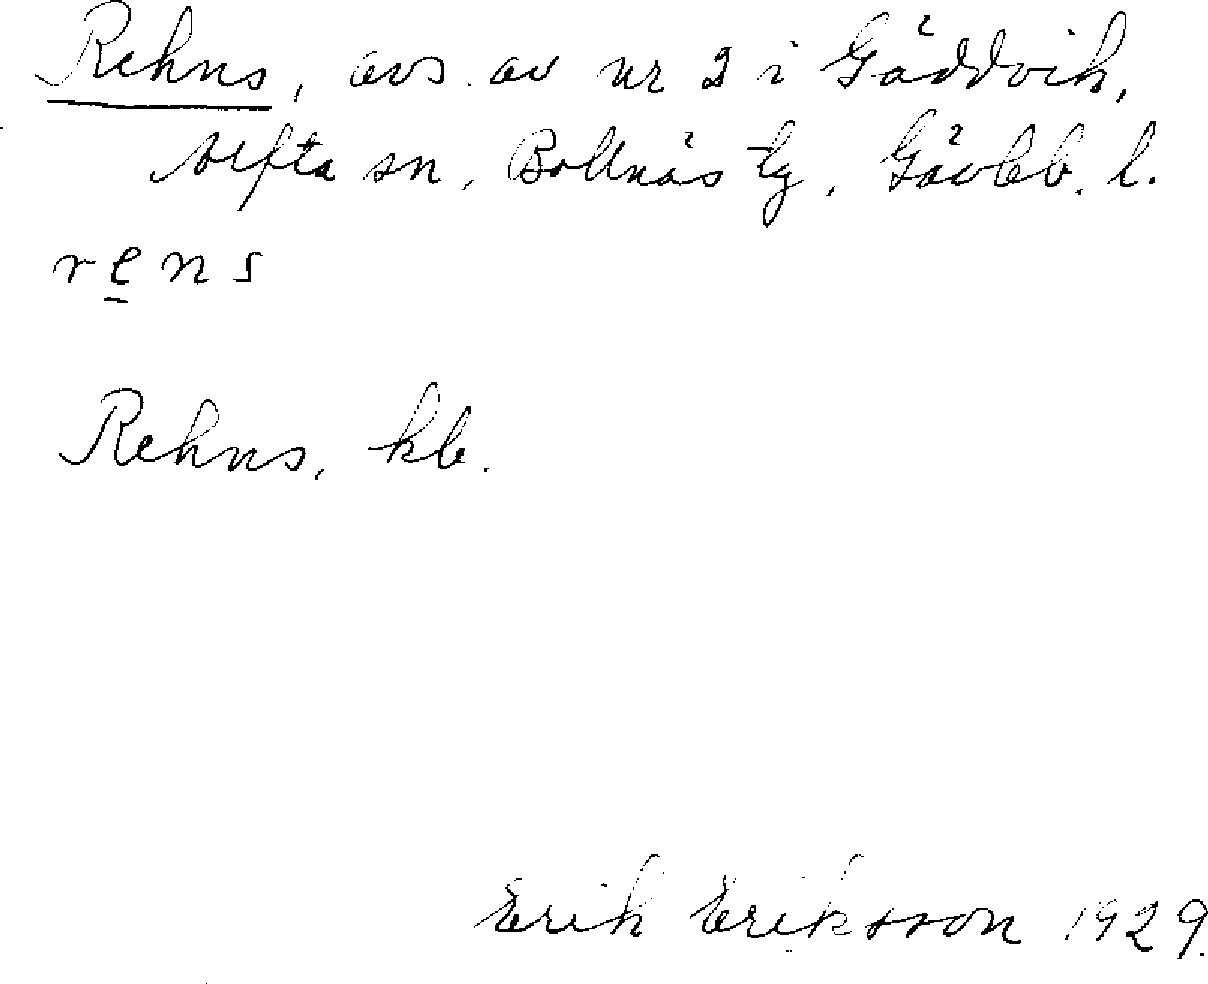 Rehns, avs. av nr 2 i Gäddvik,
Alfta sn, Bollnäs tg, Gävleb. l.
rens
Rehns, kb.
Erik Eriksson 1929.